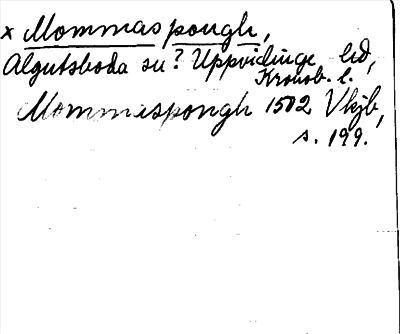 x Mommaspongh,
Algutsboda sn? Uppvidinge hd,
Kronob. l.
Mommespongh 1502 Vkjb,
s. 199.